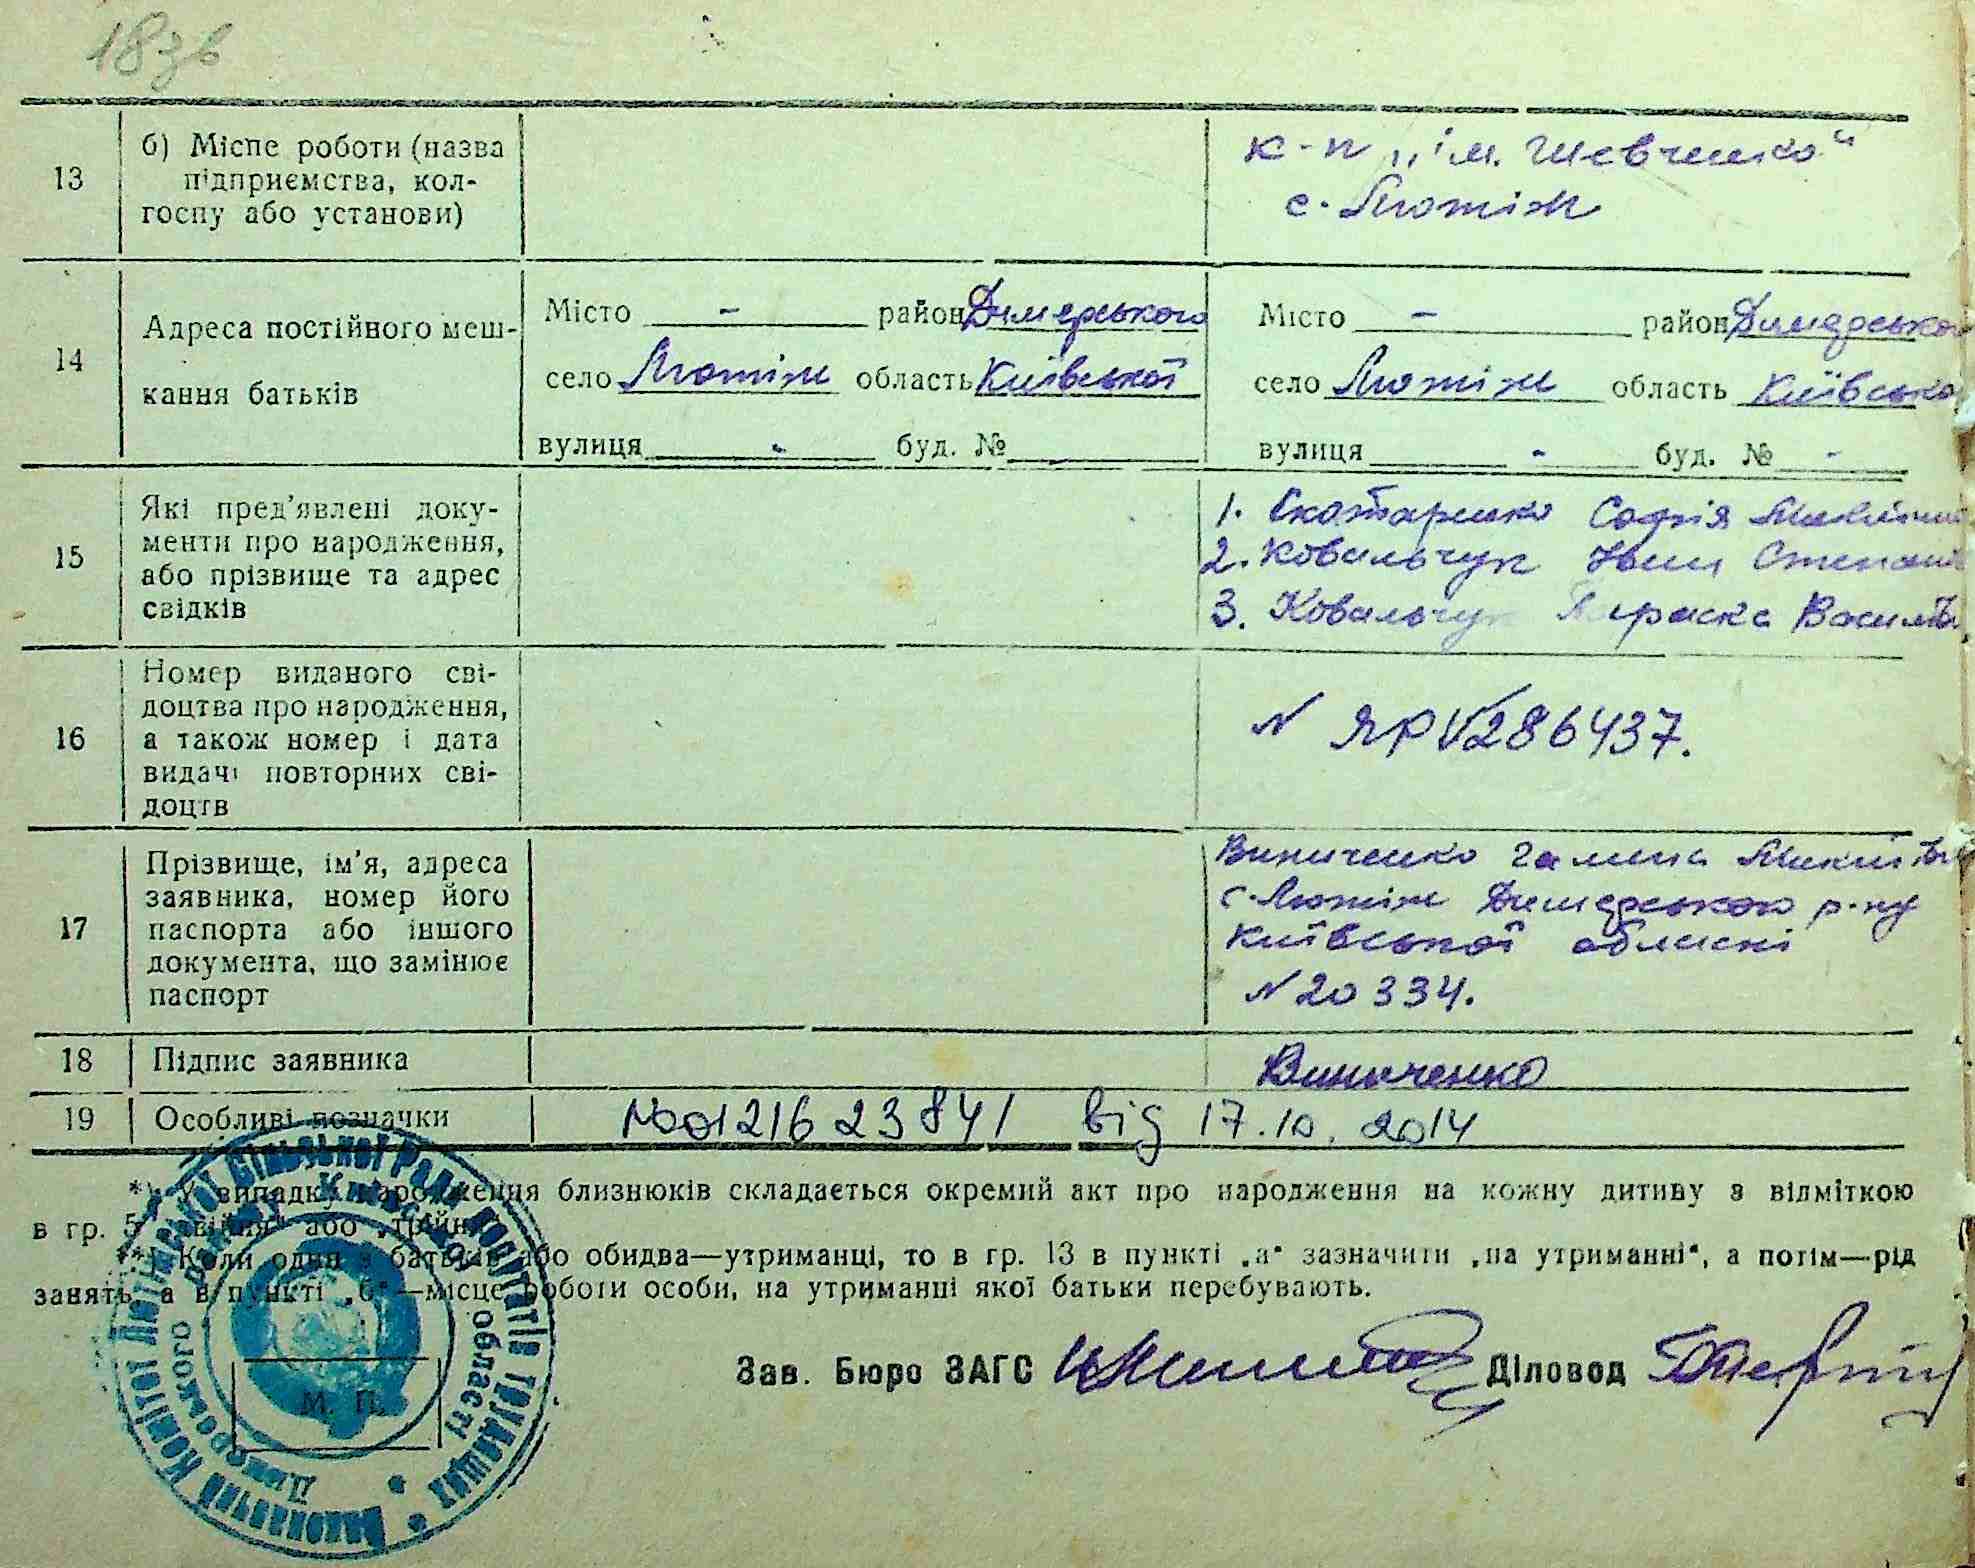 18зв
13
б) Місце роботи (назва
підприємства, кол-
госпу або установи)
к-п „ім. Шевченко“
с. Лютіж
14
Адреса постійного меш-
кання батьків
Місто - район Димерського
село Лютіж область Київської
вулиця - буд. №
Місто - район Димерсько
село Лютіж область Київсько
вулиця - буд. № -
15
Які пред'явлені доку-
менти про народження,
або прізвище та адрес
свідків
1. Скотаренко Софія
2. Ковальчук Іван Степані
3. Ковальчук Параска Василів
16
Номер виданого сві-
доцтва про народження,
а також номер і дата
видачі повторних сві-
доцтв
N ЯР V286437.
17
Прізвище, ім'я, адреса
заявника, номер його
паспорта або іншого
документа, що замінює
паспорт
Виниченко Галина Микитів
с. Лютіж Димерського р-ну
Київської області
N 20334.
18
Підпис заявника
Виниченко
19
Особливі позначки
№00121623841 від 17.10.2014
*) У випадку народження близнюків складається окремий акт про народження на кожну дитину з відміткою
в гр. 5 „двійня“ або „трійня“.
**) Коли один з батьків або обидва—утриманці, то в гр. 13 в пункті „а“ зазначити „на утриманні“, а потім—рід
занять, а в пункті „б“—місце роботи особи, на утриманні якої батьки перебувають.
Зав. Бюро ЗАГС
Діловод
М. П.
Виконавчий Комітет Лютізької сільської Ради депутатів трудящих
Димерського району Київської області